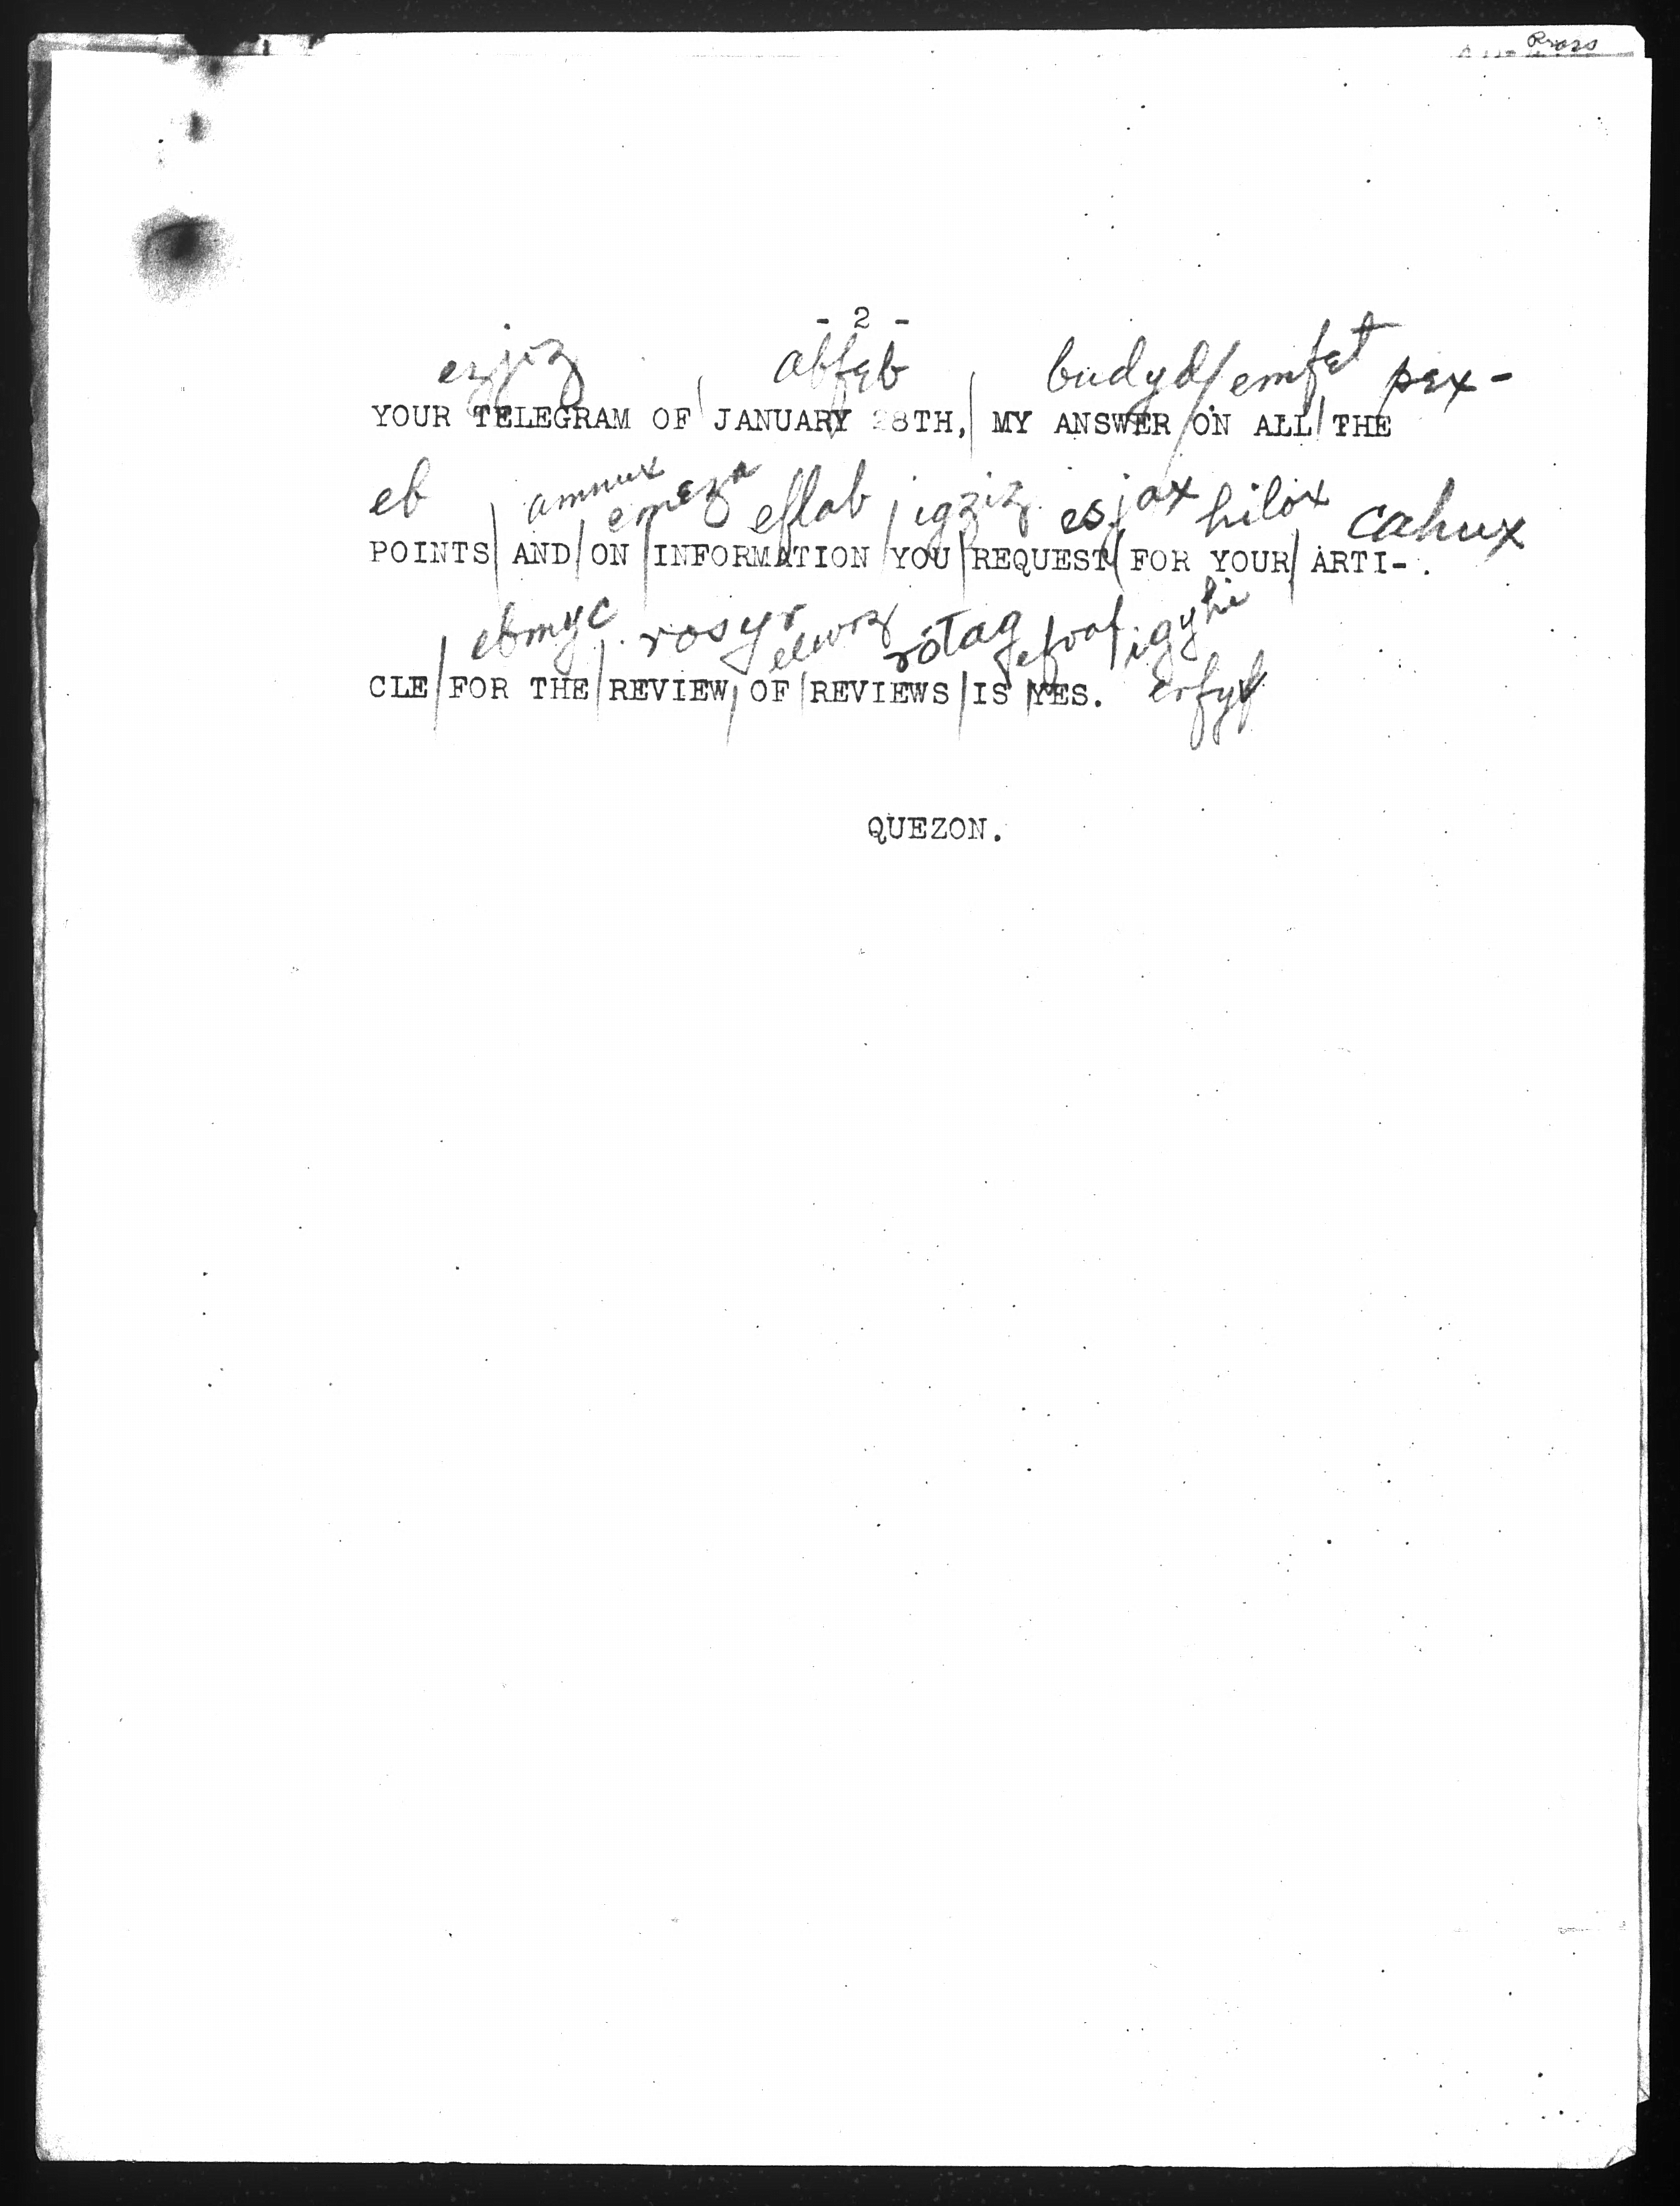 Press
- 2 -
ezjiz abfeb budyd/emfet pex-
YOUR TELEGRAM OF JANUARY 28TH, MY ANSWER ON ALL THE
eb amnux emezn eflab igziz esjax hilox cahux
POINTS AND ON INFORMATION YOU REQUEST FOR YOUR ARTI-
ebmyc rosyr rotag efvof igyhi
CLE FOR THE REVIEW OF REVIEWS IS YES. erfyf
QUEZON.